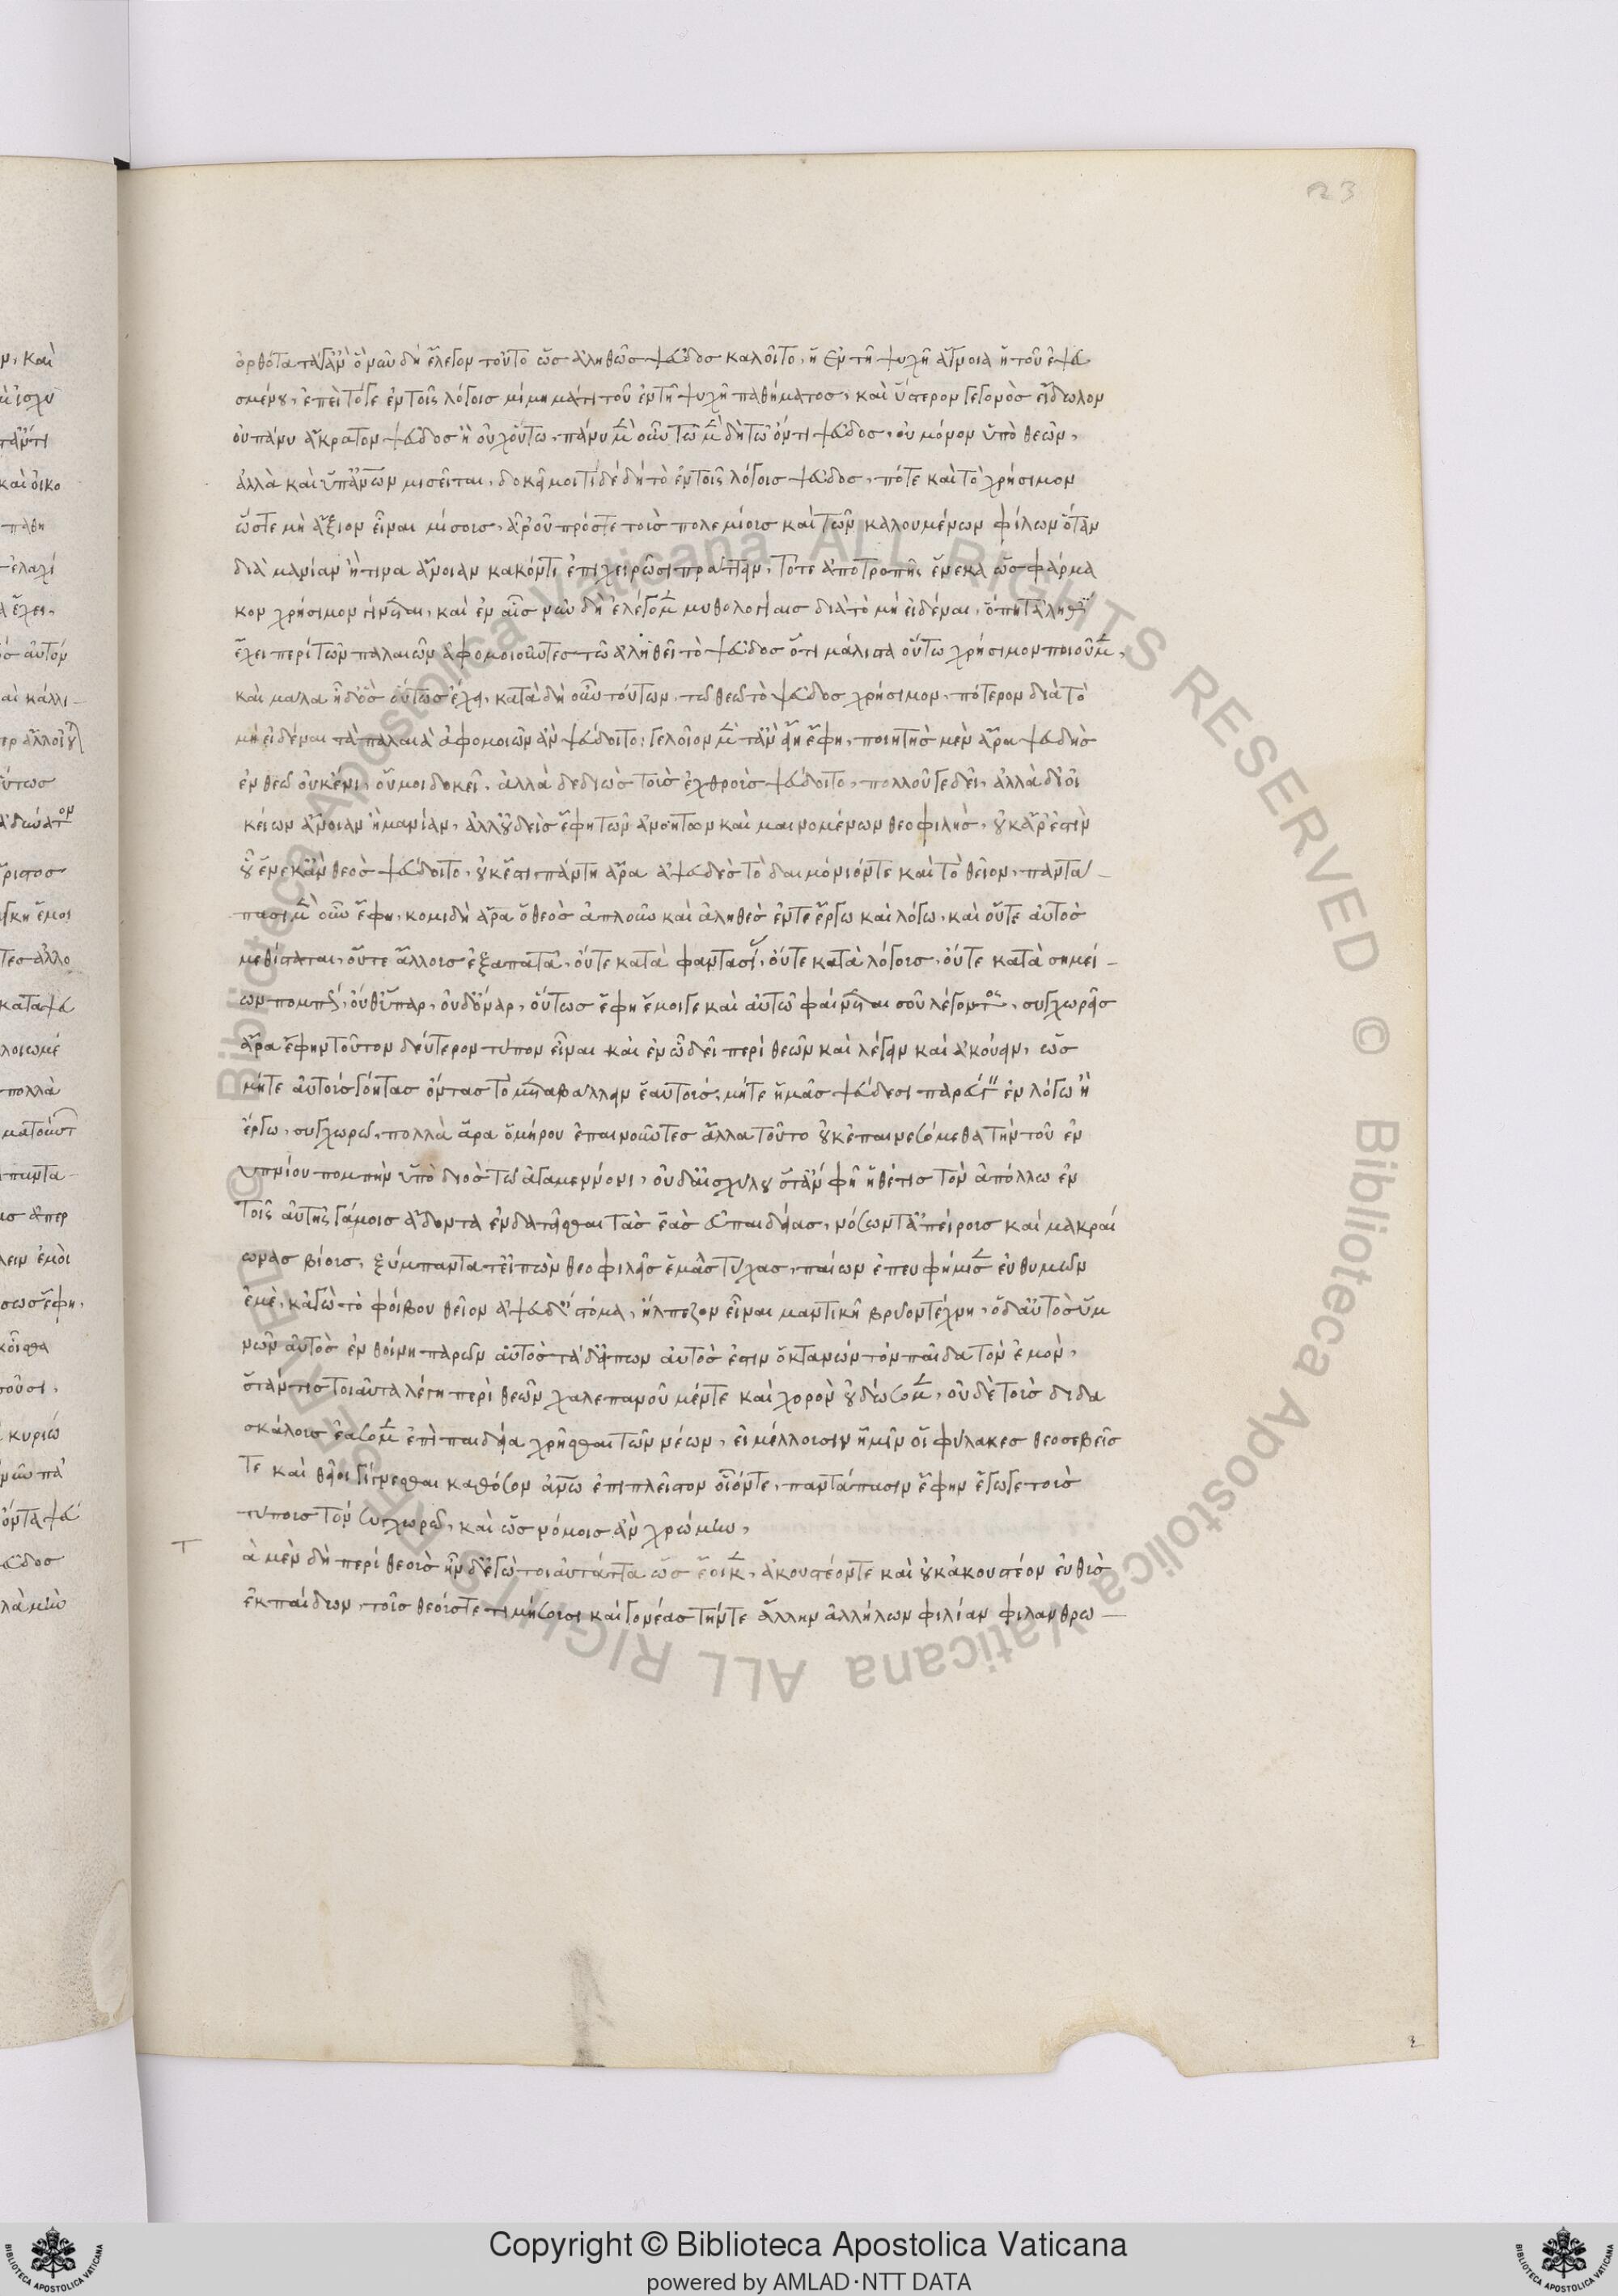 23
ὀρθότατα γ' ἂν ὃ νῦν δὴ ἔλεγον τοῦτο ὡς ἀληθῶς ψεῦδος καλοῖτο, ἡ ἐν τῇ ψυχῇ ἄγνοια ἡ τοῦ ἐψευ
σμένου, ἐπεὶ τό γε ἐν τοῖς λόγοις μίμημά τι τοῦ ἐν τῇ ψυχῇ παθήματος, καὶ ὕστερον γεγονὸς εἴδωλον
οὐ πάνυ ἄκρατον ψεῦδος ἢ οὐχ οὕτω, πάνυ μὲν οὖν τῶ μὲν δὴ τῶ ὄντι ψεῦδος, οὐ μόνον ὑπὸ θεῶν,
ἀλλὰ καὶ ὑπ' ἀνθρώπων μισεῖται, δοκεῖ μοι τί δὲ δὴ τὸ ἐν τοῖς λόγοις ψεῦδος, πότε καὶ τὸ χρήσιμον
ὥστε μὴ ἄξιον εἶναι μίσους, ἆρ' οὐ πρός τε τοὺς πολεμίους καὶ τῶν καλουμένων φίλων ὅταν
διὰ μανίαν ἤ τινα ἄνοιαν κακόν τι ἐπιχειρῶσι πράττειν, τότε ἀποτροπῆς ἕνεκα ὡς φάρμα
κον χρήσιμον γίνεται, καὶ ἐν αἷς νῦν δὴ ἐλέγομεν μυθολογίαις διὰ τὸ μὴ εἰδέναι, ὅπη τἀληθῆ
ἔχει περὶ τῶν παλαιῶν ἀφομοιοῦντες τῶ ἀληθεῖ τὸ ψεῦδος ὅτι μάλιστα οὕτω χρήσιμον ποιοῦμεν,
καὶ μάλα ἦ δ' ὃς οὕτως ἔχει, κατὰ δὴ οὖν τούτων, τῶ θεῶ τὸ ψεῦδος χρήσιμον, πότερον διὰ τὸ
μὴ εἰδέναι τὰ παλαιὰ ἀφομοιῶν ἂν ψεύδοιτο; γελοῖον μὲν τ' ἂν εἴη ἔφη, ποιητὴς μὲν ἄρα ψευδὴς
ἐν θεῶ οὐκ ἔνι, οὔ μοι δοκεῖ, ἀλλὰ δεδιὼς τοὺς ἐχθροὺς ψεύδοιτο, πολλοῦ γε δεῖ, ἀλλὰ δι' οἰ
κείων ἄνοιαν ἢ μανίαν, ἀλλ' οὐδεὶς ἔφη τῶν ἀνοήτων καὶ μαινομένων θεοφιλὴς, οὐκ ἄρ' ἔστιν
οὗ ἕνεκ' ἂν θεὸς ψεύδοιτο, οὐκ ἔστι, πάντη ἄρα ἀψευδὲς τὸ δαιμόνιόν τε καὶ τὸ θεῖον, παντά-
πασι μὲν οὖν ἔφη, κομιδῆ ἄρα ὁ θεὸς ἁπλοῦν καὶ ἀληθὲς ἔν τε ἔργω καὶ λόγω, καὶ οὔτε αὐτὸς
μεθίσταται, οὔτε ἄλλους ἐξαπατᾶ, οὔτε κατὰ φαντασίας, οὔτε κατὰ λόγους, οὔτε κατὰ σημεί-
ων πομπὰς, οὔθ' ὕπαρ, οὐδ' ὄναρ, οὕτως ἔφη ἔμοιγε καὶ αὐτῶ φαίνεται σοῦ λέγοντος, συγχωρεῖς
ἄρα ἔφην τοῦτον δεύτερον τύπον εἶναι καὶ ἐν ὧ δεῖ περὶ θεῶν καὶ λέγειν καὶ ἀκούειν, ὡς
μήτε αὐτοὺς γόητας ὄντας τὸ μεταβάλλειν ἑαυτοὺς, μήτε ἡμᾶς ψεύδεσι παράγειν ἐν λόγω ἢ
ἔργω, συγχωρῶ, πολλὰ ἄρα ὁμήρου ἐπαινοῦντες ἄλλα τοῦτο οὐκ ἐπαινεσόμεθα τὴν τοῦ ἐν
υπνίου πομπὴν ὑπὸ διὸς τῶ ἀγαμέμνονι, οὐδ' αἰσχύλου ὅταν φῆ ἡ θέτις τὸν ἀπόλλω ἐν
τοῖς αὐτῆς γάμοις ἄδοντα ἐνδατεῖσθαι τὰς ἑὰς εὐπαιδείας, νόσων τ' ἀπείρους καὶ μακραί
ωνας βίους, ξύμπαντά τ' εἰπὼν θεοφιλεῖς ἐμὰς τύχας, παίων' ἐπευφήμησεν εὐθυμῶν
ἐμὲ, κἀγὼ τὸ φοίβου θεῖον ἀψευδὲς στόμα, ἤλπιζον εἶναι μαντικῆ βρύον τέχνη, ὁ δ' αὐτὸς ὑμ
νῶν αὐτὸς ἐν θοίνη παρὼν αὐτὸς τάδ' εἰπὼν αὐτός ἐστιν ὁ κτανὼν τὸν παῖδα τὸν ἐμὸν,
ὅταν τις τοιαῦτα λέγη περὶ θεῶν χαλεπανοῦμέν τε καὶ χορὸν οὐ δώσομεν, οὐδὲ τοὺς διδα
σκάλους ἐάσομεν ἐπὶ παιδεία χρῆσθαι τῶν νέων, εἰ μέλλουσιν ἡμῖν οἱ φύλακες θεοσεβεῖς
τε καὶ θεῖοι γίγνεσθαι καθόσον ἀνθρώπω ἐπιπλεῖστον οἷόν τε, παντάπασιν ἔφην ἔγωγε τοὺς
τύπους τούς συγχωρῶ, καὶ ὡς νόμοις ἂν χρώμην,
Τ
ὰ μὲν δὴ περὶ θεοὺς ἦν δ' ἐγὼ τοιαῦτ' ἄττα ὡς ἔοικεν, ἀκουστέον τε καὶ οὐκ ἀκουστέον εὐθὺς
ἐκ παίδων, τοῖς θεούς τε τιμήσουσι καὶ γονέας τήν τε ἄλλην ἀλλήλων φιλίαν φιλανθρω-
Copyright © Biblioteca Apostolica Vaticana
powered by AMLAD·NTT DATA